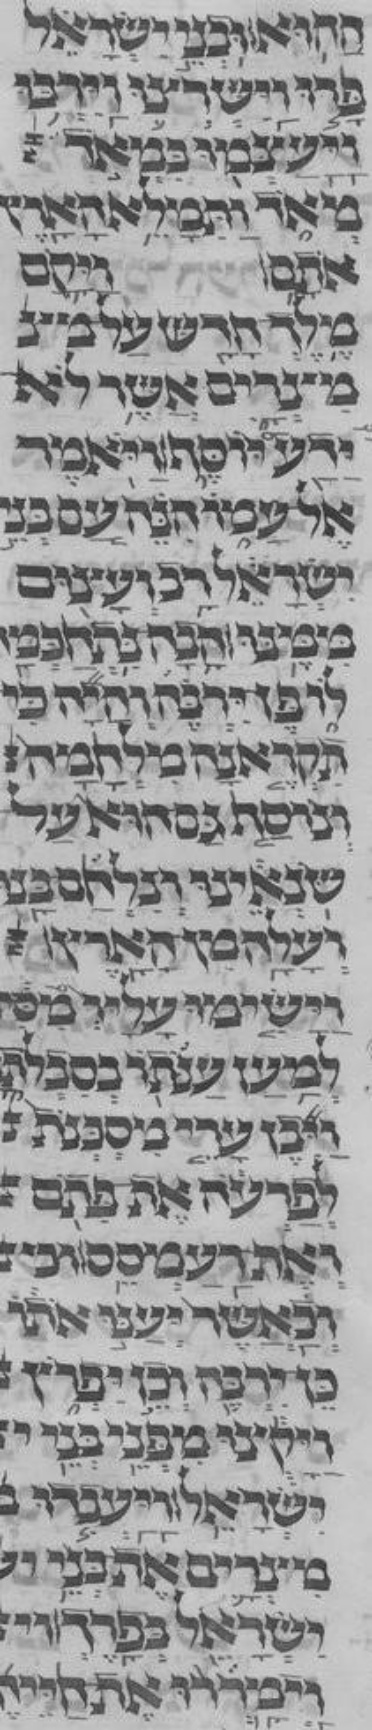 ההוא ובני ישראל
פרו וישרצו וירבו
ויעצמו במאד
מאד ותמלא הארץ
אתם ויקם
מלך חדש על מצ
מצרים אשר לא
ידע יוסף ויאמר
אל עמו הנה עם בני
ישראל רב ועצום
ממנו הבה נתחכמה
לו פן ירבה והיה כי
תקראנה מלחמה
ונוסף גם הוא על
שנאינו ונלחם בנו
ועלה מן הארץ
וישימו עליו
למען ענתו בסבלתם
ויבן ערי מסכנת
לפרעה את פתם
ואת רעמסס וכא
וכאשר יענו אתו
כן ירבה וכן יפרץ
ויקצו מפני בני יש
ישראל ויעבדו מ
מצרים את בני יש
ישראל בפרך וי
וימררו את חייהם